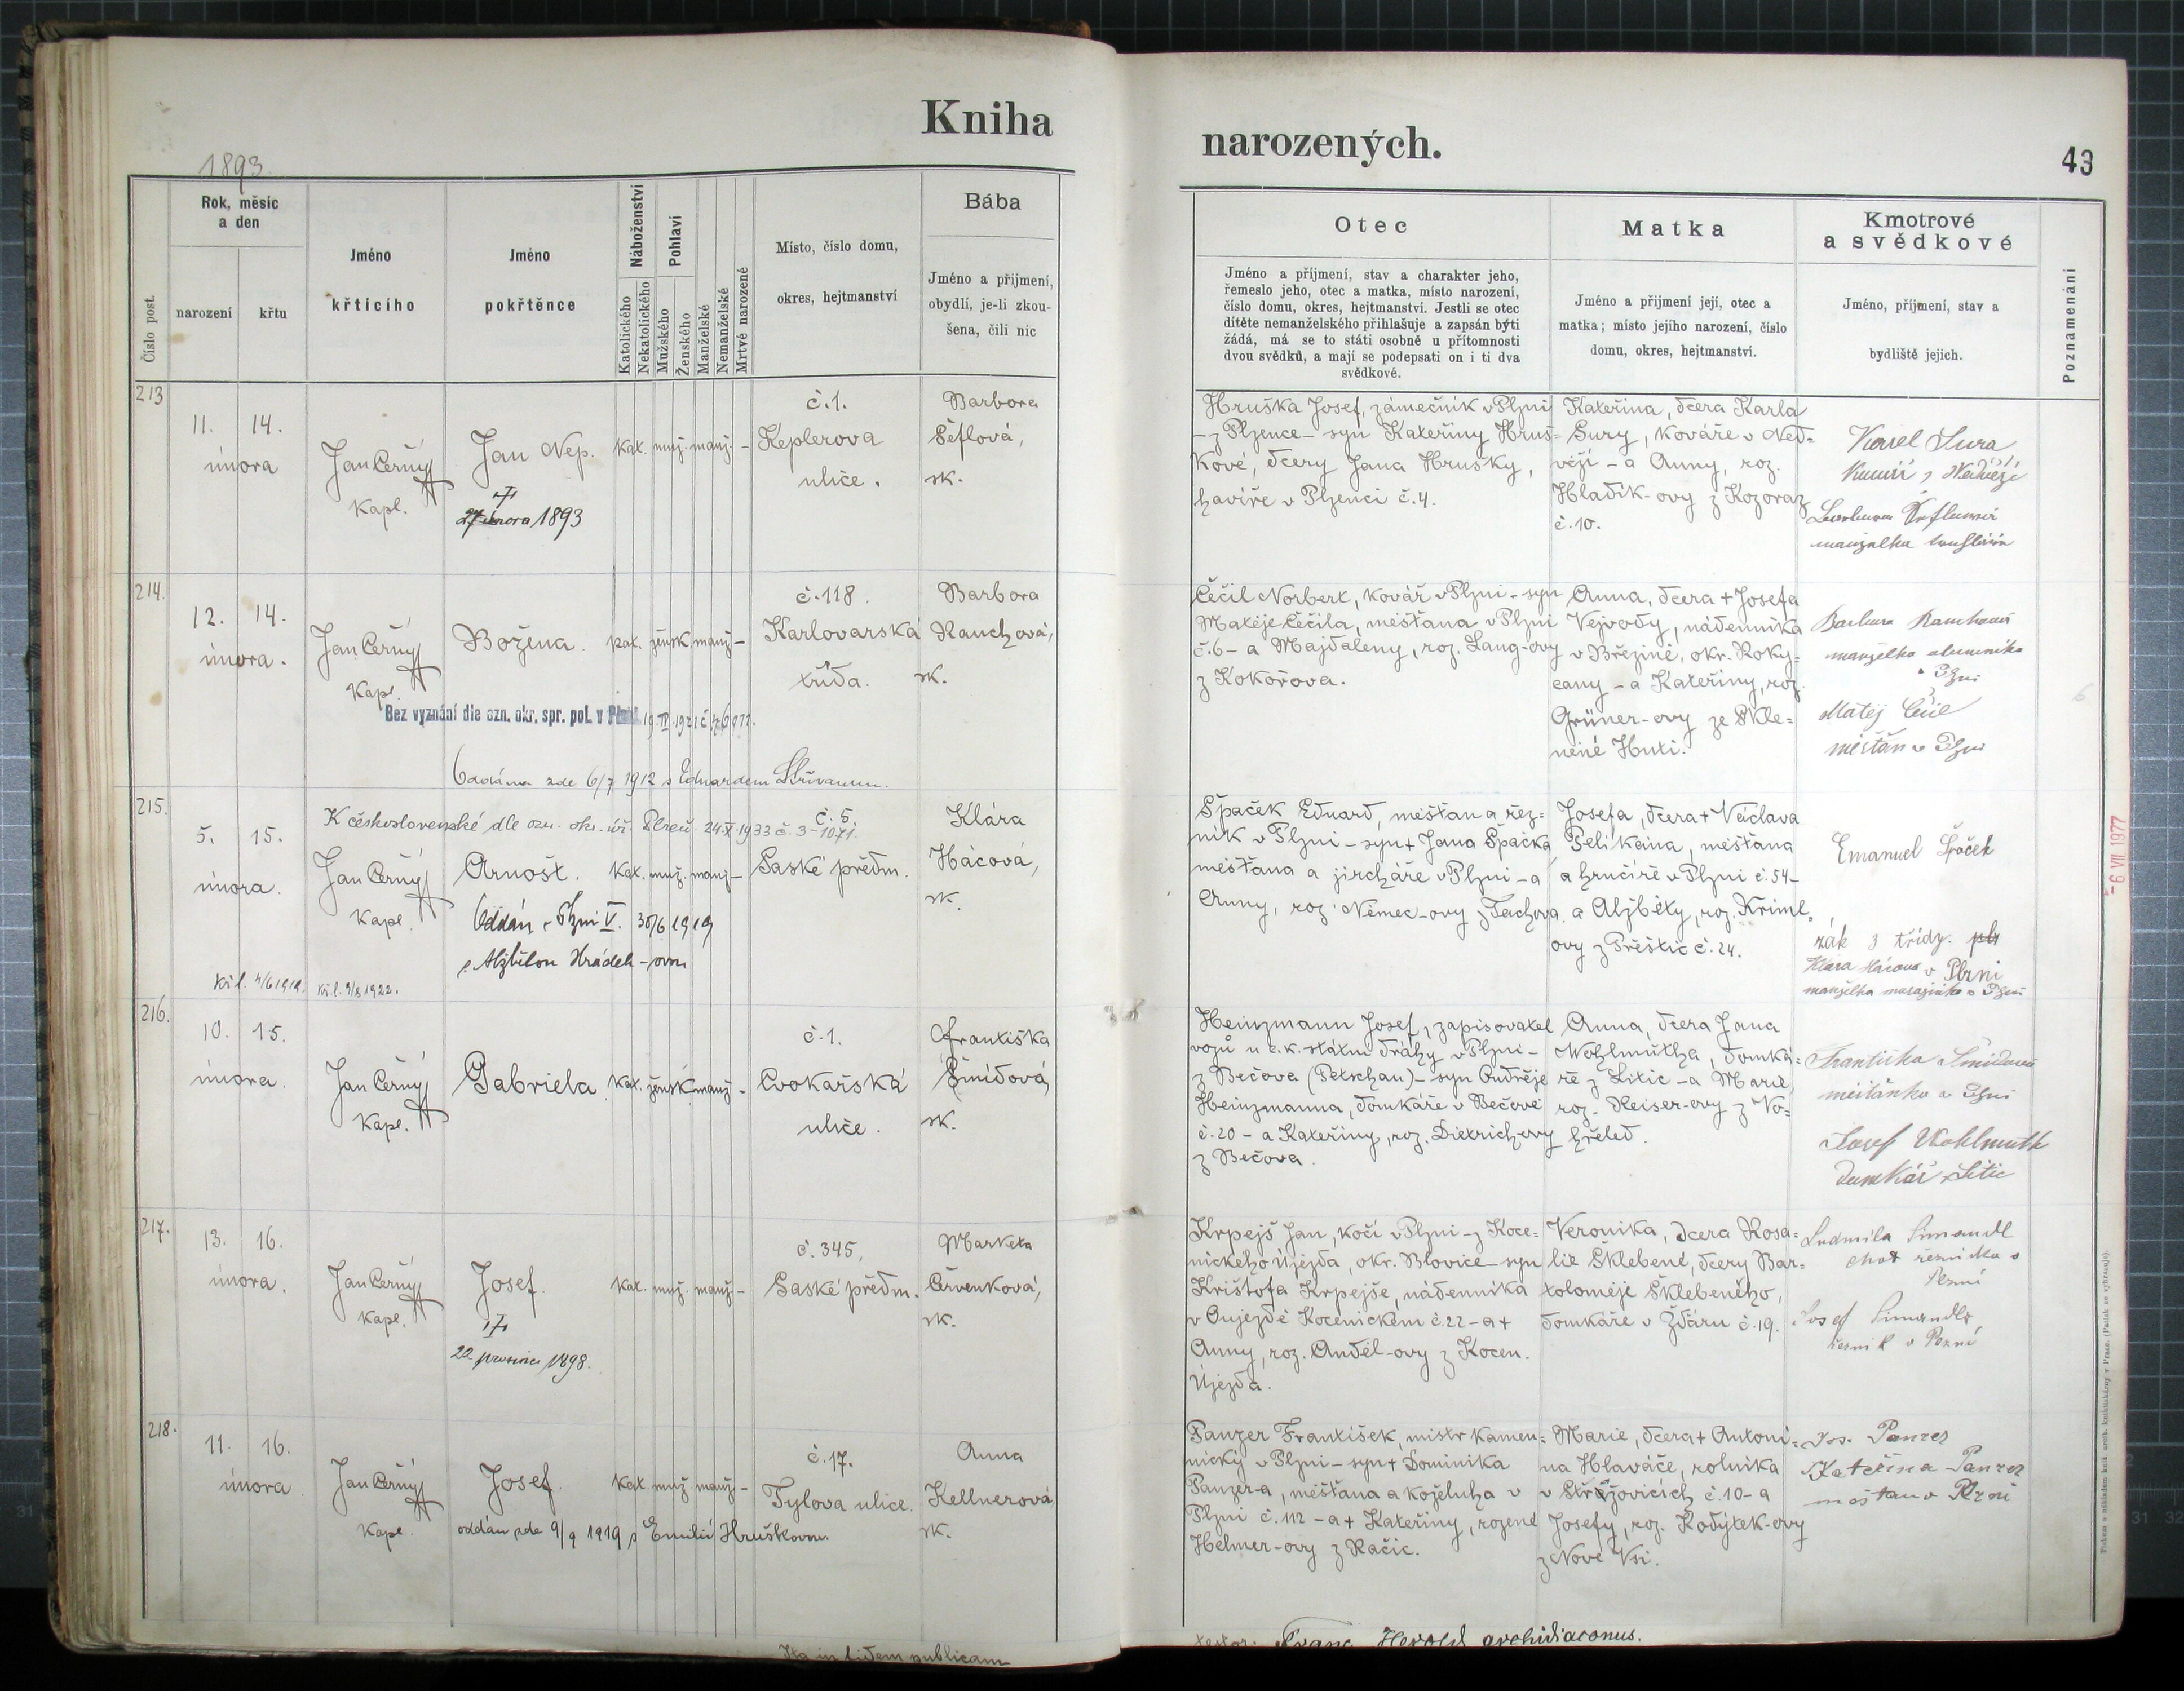 Kniha
narozených.
43
1893
Číslo post.
Rok, měsíc
a den
narození
křtu
Jméno
křtícího
Jméno
pokřtěnce
Náboženství
Katolického
Nekatolického
Pohlaví
Mužského
Ženského
Manželské
Nemanželské
Mrtvé narozené
Místo, číslo domu,
okres, hejtmanství
Bába
Jméno a přijmení,
obydlí, je-li zkou-
šena, čili nic
Otec
Jméno a příjmení, stav a charakter jeho,
řemeslo jeho, otec a matka, místo narození,
číslo domu, okres, hejtmanství. Jestli se otec
dítěte nemanželského přihlašuje a zapsán býti
žádá, má se to státi osobně u přítomnosti
dvou svědků, a mají se podepsati on i ti dva
svědkové.
Matka
Jméno a přijmení její, otec a
matka; místo jejího narození, číslo
domu, okres, hejtmanství.
Kmotrové
a svědkové
Jméno, příjmení, stav a
bydliště jejich.
Poznamenání
213
11. 14.
února
Jan Černý
Kapl.
Jan Nep.
27 února 1893
Kat. muž. manž. -
č.1.
Keplerova
ulice.
Barbora
Šeflová,
zk.
Hruška Josef, zámečník v Plzni
- z Plzence - syn Kateřiny Hruš-
kové, dcery Jana Hrušky,
havíře v Plzenci č.4.
Kateřina, dcera Karla
Sury, kováře v Ned-
věží - a Anny, roz.
Hladík-ovy z Kozoraz
č.10.
Karel Sura
manželka
214.
12. 14.
února.
Jan Černý
Kapl.
Božena.
kat. žensk. manž. -
č.118.
Karlovarská
třída.
Barbora
Rauchová,
zk.
Bez vyznání dle ozn. okr. spr. pol. v Plzni
Oddána zde 6/7 1912 s Eduardem
Čečil Norbert, kovář v Plzni - syn
Matěje Čečila, měšťana v Plzni
č.6 - a Majdaleny, roz. Lang-ovy
z Kokořova.
Anna, dcera + Josefa
Vejvody, nádenníka
v Březině, okr. Roky-
cany - a Kateřiny, roz.
Grüner-ovy ze Skle-
něné Huti.
Barbora Rauchová
manželka
v Plzni
Matěj Čečil
měšťan v Plzni
215.
5. 15.
února.
K československé dle ozn. okr. úř. Plzeň 24.X.1933 č. 3-1071.
Jan Černý
Kapl.
Arnošt.
Kat. muž. manž. -
č. 5.
Saské předm.
Klára
Hácová,
zk.
Oddán v Plzni V. 30/6 1919
s Alžbětou Hrádek-ovou
Kř. l. 4/6 1919. Kř. l. 9/8 1922.
Špaček Eduard, měšťan a řez-
ník v Plzni - syn + Jana Špačka
měšťana a jircháře v Plzni - a
Anny, roz. Němec-ovy z Tachova.
Josefa, dcera + Václava
Pelikána, měšťana
a hrnčíře v Plzni č.54 -
a Alžběty, roz. Kriml-
ovy z Přeštic č.24.
Emanuel Špaček
žák 3 třídy.
Klára Hácová v Plzni
manželka v Plzni
- 6 VII 1977
216.
10. 15.
února.
Jan Černý
Kapl.
Gabriela
Kat. žensk. manž. -
č.1.
Cvokařská
ulice.
Františka
Šmídová,
zk.
Heinzmann Josef, zapisovatel
vozů u c.k. státní dráhy v Plzni -
z Bečova (Petschau) - syn Ondřeje
Heinzmanna, domkáře v Bečově
č.20 - a Kateřiny, roz. Dietrichovy
z Bečova.
Anna, dcera Jana
Wohlmutha, domká-
ře z Litic - a Marie,
roz. Reiser-ovy z No-
hřeled.
Františka Šmídová
měšťanka v Plzni
Josef Wohlmuth
Domkář z Litic
217.
13. 16.
února.
Jan Černý
Kapl.
Josef.
22 prosince 1898.
Kat. muž. manž. -
č. 345.
Saské předm.
Marketa
Červenková,
zk.
Krpejš Jan, kočí v Plzni - z Koce-
nického Újezda, okr. Blovice - syn
Krištofa Krpejše, nádenníka
v Oujezdě Kocenickém č.22 - a +
Anny, roz. Anděl-ovy z Kocen.
Újezda.
Veronika, dcera Rosa-
lie Šklebené, dcery Bar-
toloměje Šklebeného,
domkáře v Žďáru č.19.
Ludmila Simandl
chot řezníka v
Plzni
Josef Simandl
řezník v Plzni
218.
11. 16.
února
Jan Černý
Kapl.
Josef.
Kat. muž. manž. -
č.17.
Tylova ulice.
Anna
Kellnerová
zk.
oddán zde 9/9 1919 s Emilií Hruškovou.
Panzer František, mistr kamen-
nický v Plzni - syn + Dominika
Panzer-a, měšťana a koželuha v
Plzni č.112 - a + Kateřiny, rozené
Helmer-ovy z Račic.
Marie, dcera + Antoní-
na Hlaváče, rolníka
v Střížovicích č.10 - a
Josefy, roz. Kodýtek-ovy
z Nové Vsi.
Jos. Panzer
Kateřina Panzer
měšťan v Plzni
Ita in fidem publicam
testor: Franc. Herold archidiaconus.